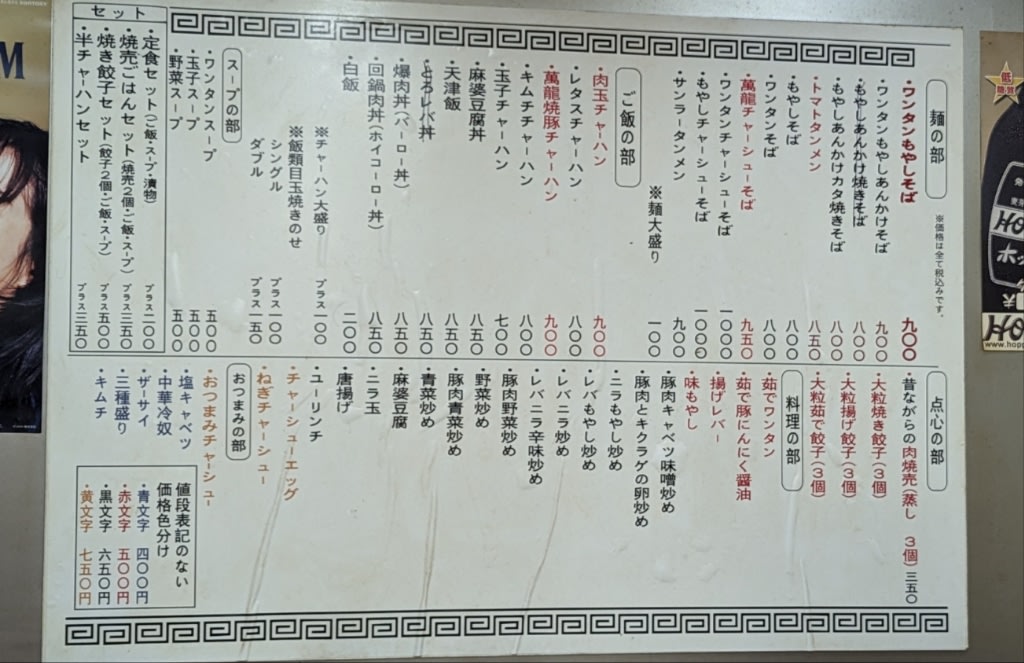 麺の部
※価格は全て税込みです。
・ワンタンもやしそば 九〇〇
・ワンタンもやしあんかけそば 九〇〇
・もやしあんかけ焼きそば 八〇〇
・もやしあんかけカタ焼きそば 八〇〇
・トマトタンメン 八五〇
・もやしそば 八〇〇
・ワンタンそば 八〇〇
・萬龍チャーシューそば 九五〇
・ワンタンチャーシューそば 一〇〇〇
・もやしチャーシューそば 一〇〇〇
・サンラータンメン 九〇〇
※麺大盛り 一〇〇
ご飯の部
・肉玉チャーハン 九〇〇
・レタスチャーハン 八〇〇
・萬龍焼豚チャーハン 九〇〇
・キムチチャーハン 八〇〇
・玉子チャーハン 七〇〇
・麻婆豆腐丼 八五〇
・天津飯 八五〇
・とろレバ丼 八五〇
・爆肉丼(バーロー丼) 八五〇
・回鍋肉丼(ホイコーロー丼) 八五〇
・白飯 二〇〇
※チャーハン大盛り プラス一〇〇
※飯類目玉焼きのせ
シングル プラス一〇〇
ダブル プラス一五〇
スープの部
・ワンタンスープ 五〇〇
・玉子スープ 五〇〇
・野菜スープ 五〇〇
セット
・定食セット(ご飯・スープ・漬物) プラス二〇〇
・焼売ごはんセット(焼売2個・ご飯・スープ) プラス三五〇
・焼き餃子セット(餃子2個・ご飯・スープ) プラス五〇〇
・半チャーハンセット プラス三五〇
点心の部
・昔ながらの肉焼売(蒸し 3個)三五〇
・大粒焼き餃子(3個)
・大粒揚げ餃子(3個)
・大粒茹で餃子(3個)
料理の部
・茹でワンタン
・茹で豚にんにく醤油
・揚げレバー
・味もやし
・豚肉キャベツ味噌炒め
・豚肉とキクラゲの卵炒め
・ニラもやし炒め
・レバもやし炒め
・レバニラ炒め
・レバニラ辛味炒め
・豚肉野菜炒め
・野菜炒め
・豚肉青菜炒め
・青菜炒め
・麻婆豆腐
・ニラ玉
・唐揚げ
・ユーリンチ
・チャーシューエッグ
・ねぎチャーシュー
おつまみの部
・おつまみチャーシュー
・塩キャベツ
・中華冷奴
・ザーサイ
・三種盛り
・キムチ
値段表記のない
価格色分け
・青文字 四〇〇円
・赤文字 五〇〇円
・黒文字 六五〇円
・黄文字 七五〇円
www.hopp